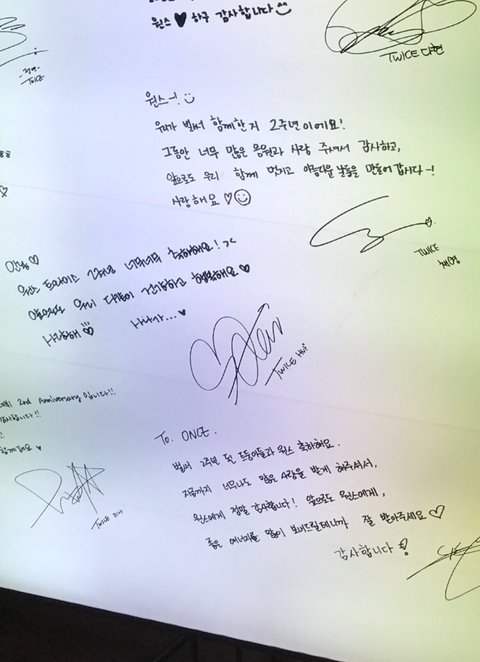 원스 ♥ 하구 감사합니다
TWICE 다현
정연
TWICE
원스~! :)
우리가 벌써 함께한지 2주년이에요!
그동안 너무 많은 응원과 사랑 주셔서 감사하고,
앞으로도 우리 함께 멋지고 아름다운 날들을 만들어 갑시다~!
사랑해요 ♡
TWICE
채영
안녕 ♡
원스 트와이스 2주년 너무너무 축하해요! ㅋㅋ
사랑해
TWICE
2nd Anniversary 입니다!!
감사합니다!!
TWICE
To. ONCE.
벌써 2주년 된 트둥이들과 원스 축하해요.
지금까지 너무나도 많은 사랑을 받게 해주셔서,
원스에게 정말 감사합니다! 앞으로도 원스에게,
좋은 에너지를 많이 보내드릴테니까 잘 받아주세요 ♡
감사합니다